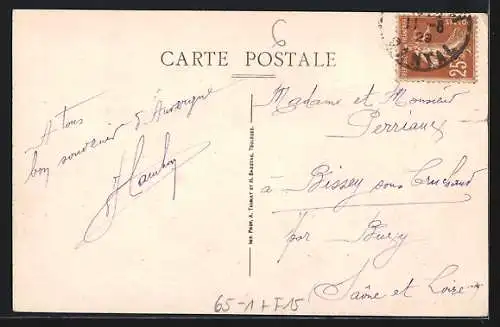 6
11 -8
29
CANTAL
25
CARTE POSTALE
A tous
bon souvenir d'Auvergne
Madame et Monsieur
Perriaux
à Bissey sous Cruchaud
par Buxy
Saône et Loire
IMP. PHOT. A. THIRIAT ET H. BASUYAU, TOULOUSE.
65-1+F15